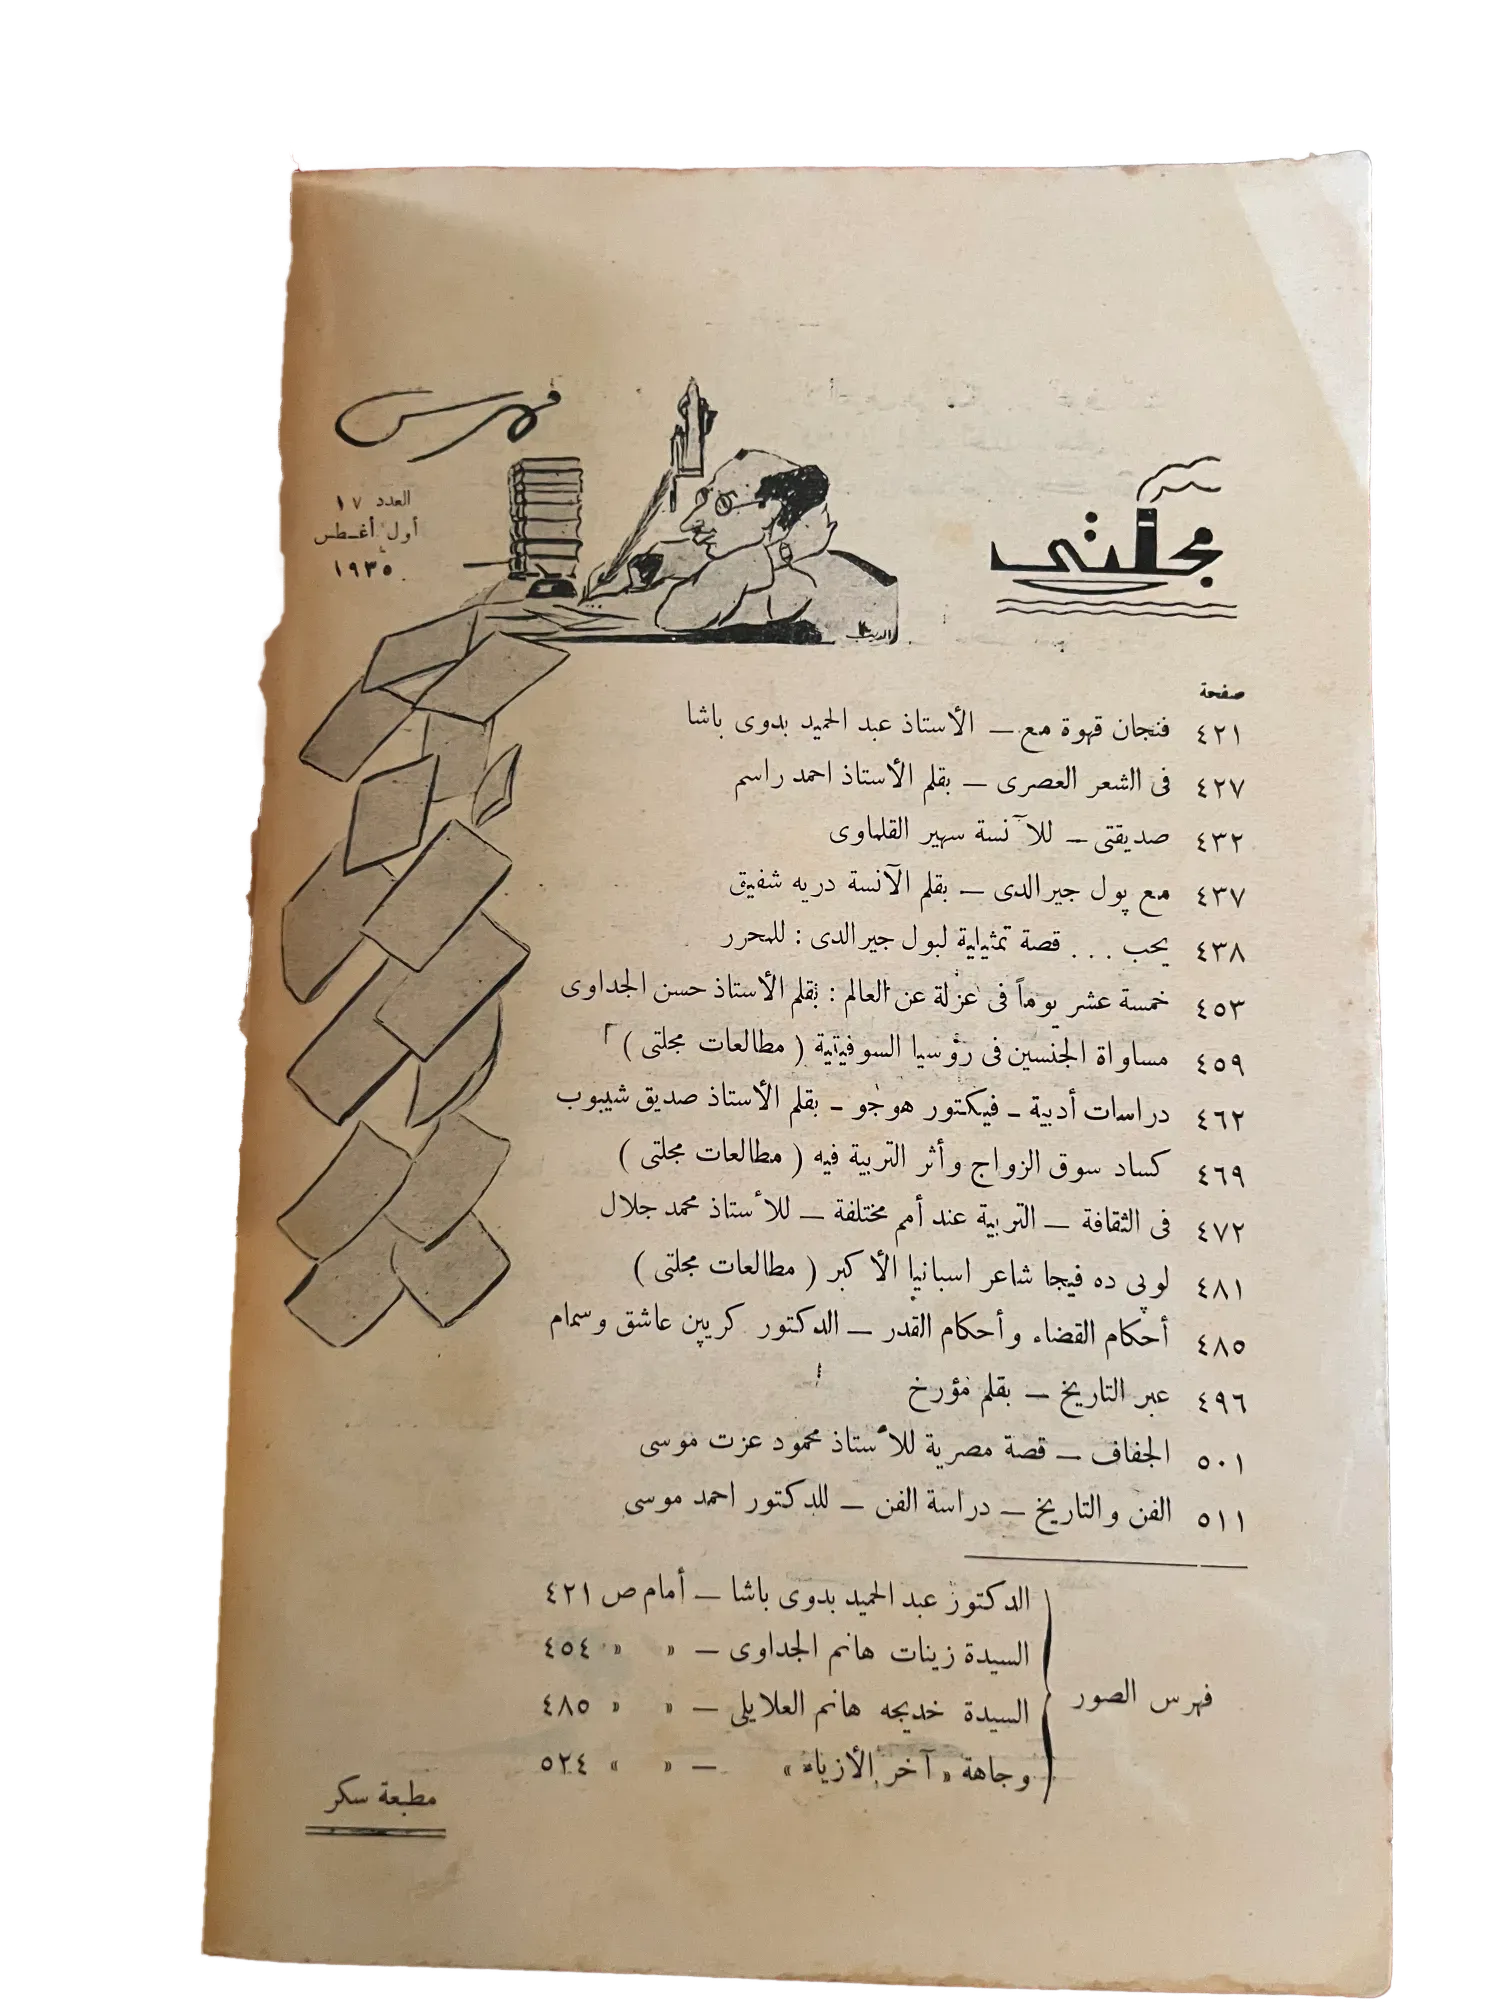 فهرس
مجلتى
العدد ١٧
أول أغسطس
١٩٣٥
صفحة
٤٢١ فنجان قهوة مع — الأستاذ عبد الحميد بدوى باشا
٤٢٧ فى الشعر العصرى — بقلم الأستاذ احمد راسم
٤٣٢ صديقتى — للآنسة سهير القلماوى
٤٣٧ مع پول جيرالدى — بقلم الآنسة دريه شفيق
٤٣٨ يحب ... قصة تمثيلية لبول جيرالدى : للمحرر
٤٥٣ خمسة عشر يوماً فى عزلة عن العالم : بقلم الأستاذ حسن الجداوى
٤٥٩ مساواة الجنسين فى رؤسيا السوفيتية ( مطالعات مجلتى )
٤٦٢ دراسات أدبية - فيكتور هوجو - بقلم الأستاذ صديق شيبوب
٤٦٩ كساد سوق الزواج وأثر التربية فيه ( مطالعات مجلتى )
٤٧٢ فى الثقافة — التربية عند أمم مختلفة — للأستاذ محمد جلال
٤٨١ لوپى ده فيجا شاعر اسبانيا الأكبر ( مطالعات مجلتى )
٤٨٥ أحكام القضاء وأحكام القدر — الدكتور كريپن عاشق وسمام
٤٩٦ عبر التاريخ — بقلم مؤرخ
٥٠١ الجفاف — قصة مصرية للأستاذ محمود عزت موسى
٥١١ الفن والتاريخ — دراسة الفن — للدكتور احمد موسى
فهرس الصور
الدكتور عبد الحميد بدوى باشا — أمام ص ٤٢١
السيدة زينات هانم الجداوى — » » ٤٥٤
السيدة خديجه هانم العلايلى — » » ٤٨٥
وجاهة « آخر الأزياء » — » » ٥٢٤
مطبعة سكر